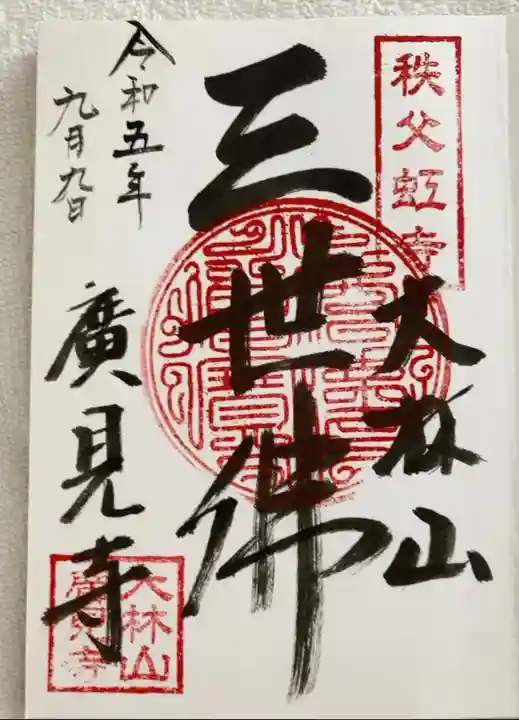 秩父虹寺
大林山
三世佛
令和五年
九月九日
廣見寺
大林山
廣見寺